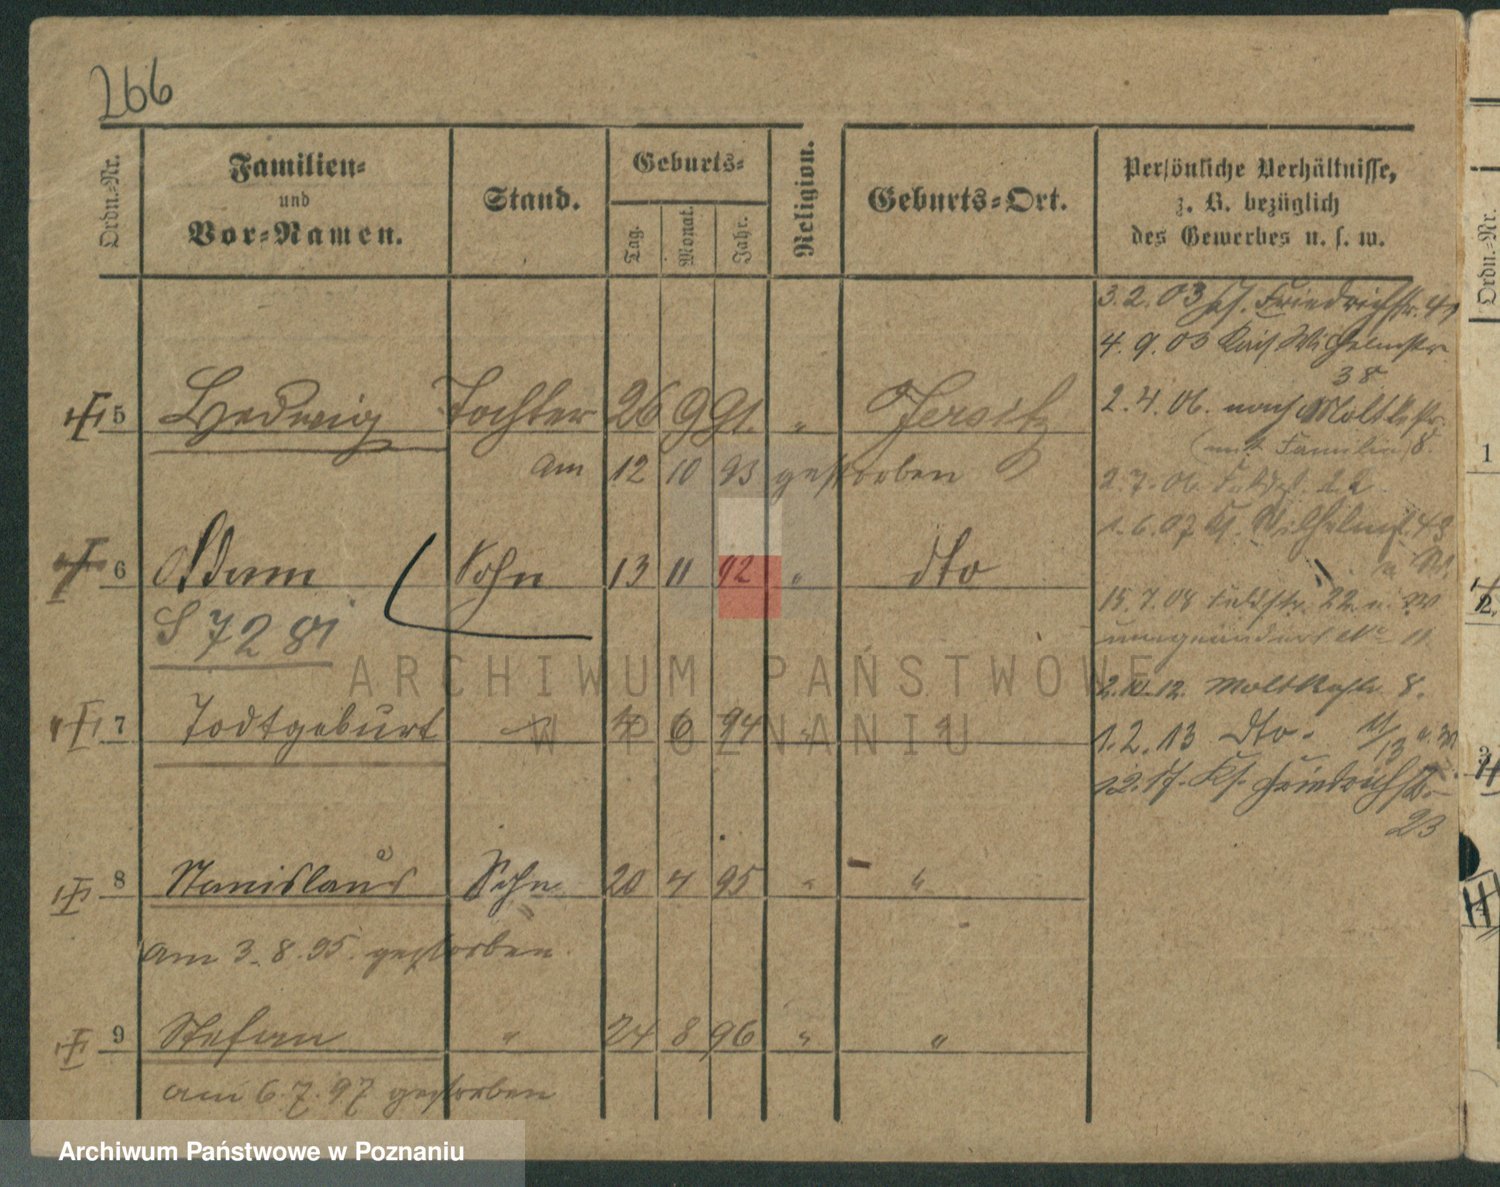 266
Ordn.-Nr.
Familien-
und
Vor-Namen.
Stand.
Geburts-
Tag.
Monat.
Jahr.
Religion.
Geburts-Ort.
Persönliche Verhältnisse,
z. B. bezüglich
des Gewerbes u. s. w.
3.2.03 Friedrichstr.
4.9.03 Kais Wilhelmstr
38
5 Hedwig Tochter 26 9 91. " Jersitz
2.4.06. nach Moltkestr.
am 12 10 93 gestorben
(mit Familie) 8.
2.7.06.
1.6.07 Wilhelmst. 43
6 Adam Sohn 13 11 92 " dto
15.7.08 Feldstr. 22
S 7281
umgeändert No 11.
2.10.12. Moltkestr. 8.
7 Todtgeburt 4 6 94 " "
1.2.13 dto.
Friedrichstr.
23
8 Stanislaus Sohn 20 4 95 " "
am 3.8.95. gestorben.
9 Stefan " 24 8 96 " "
am 6.7.97 gestorben
Ordn.-Nr.
1
2
3
ARCHIWUM PAŃSTWOWE
W POZNANIU
Archiwum Państwowe w Poznaniu